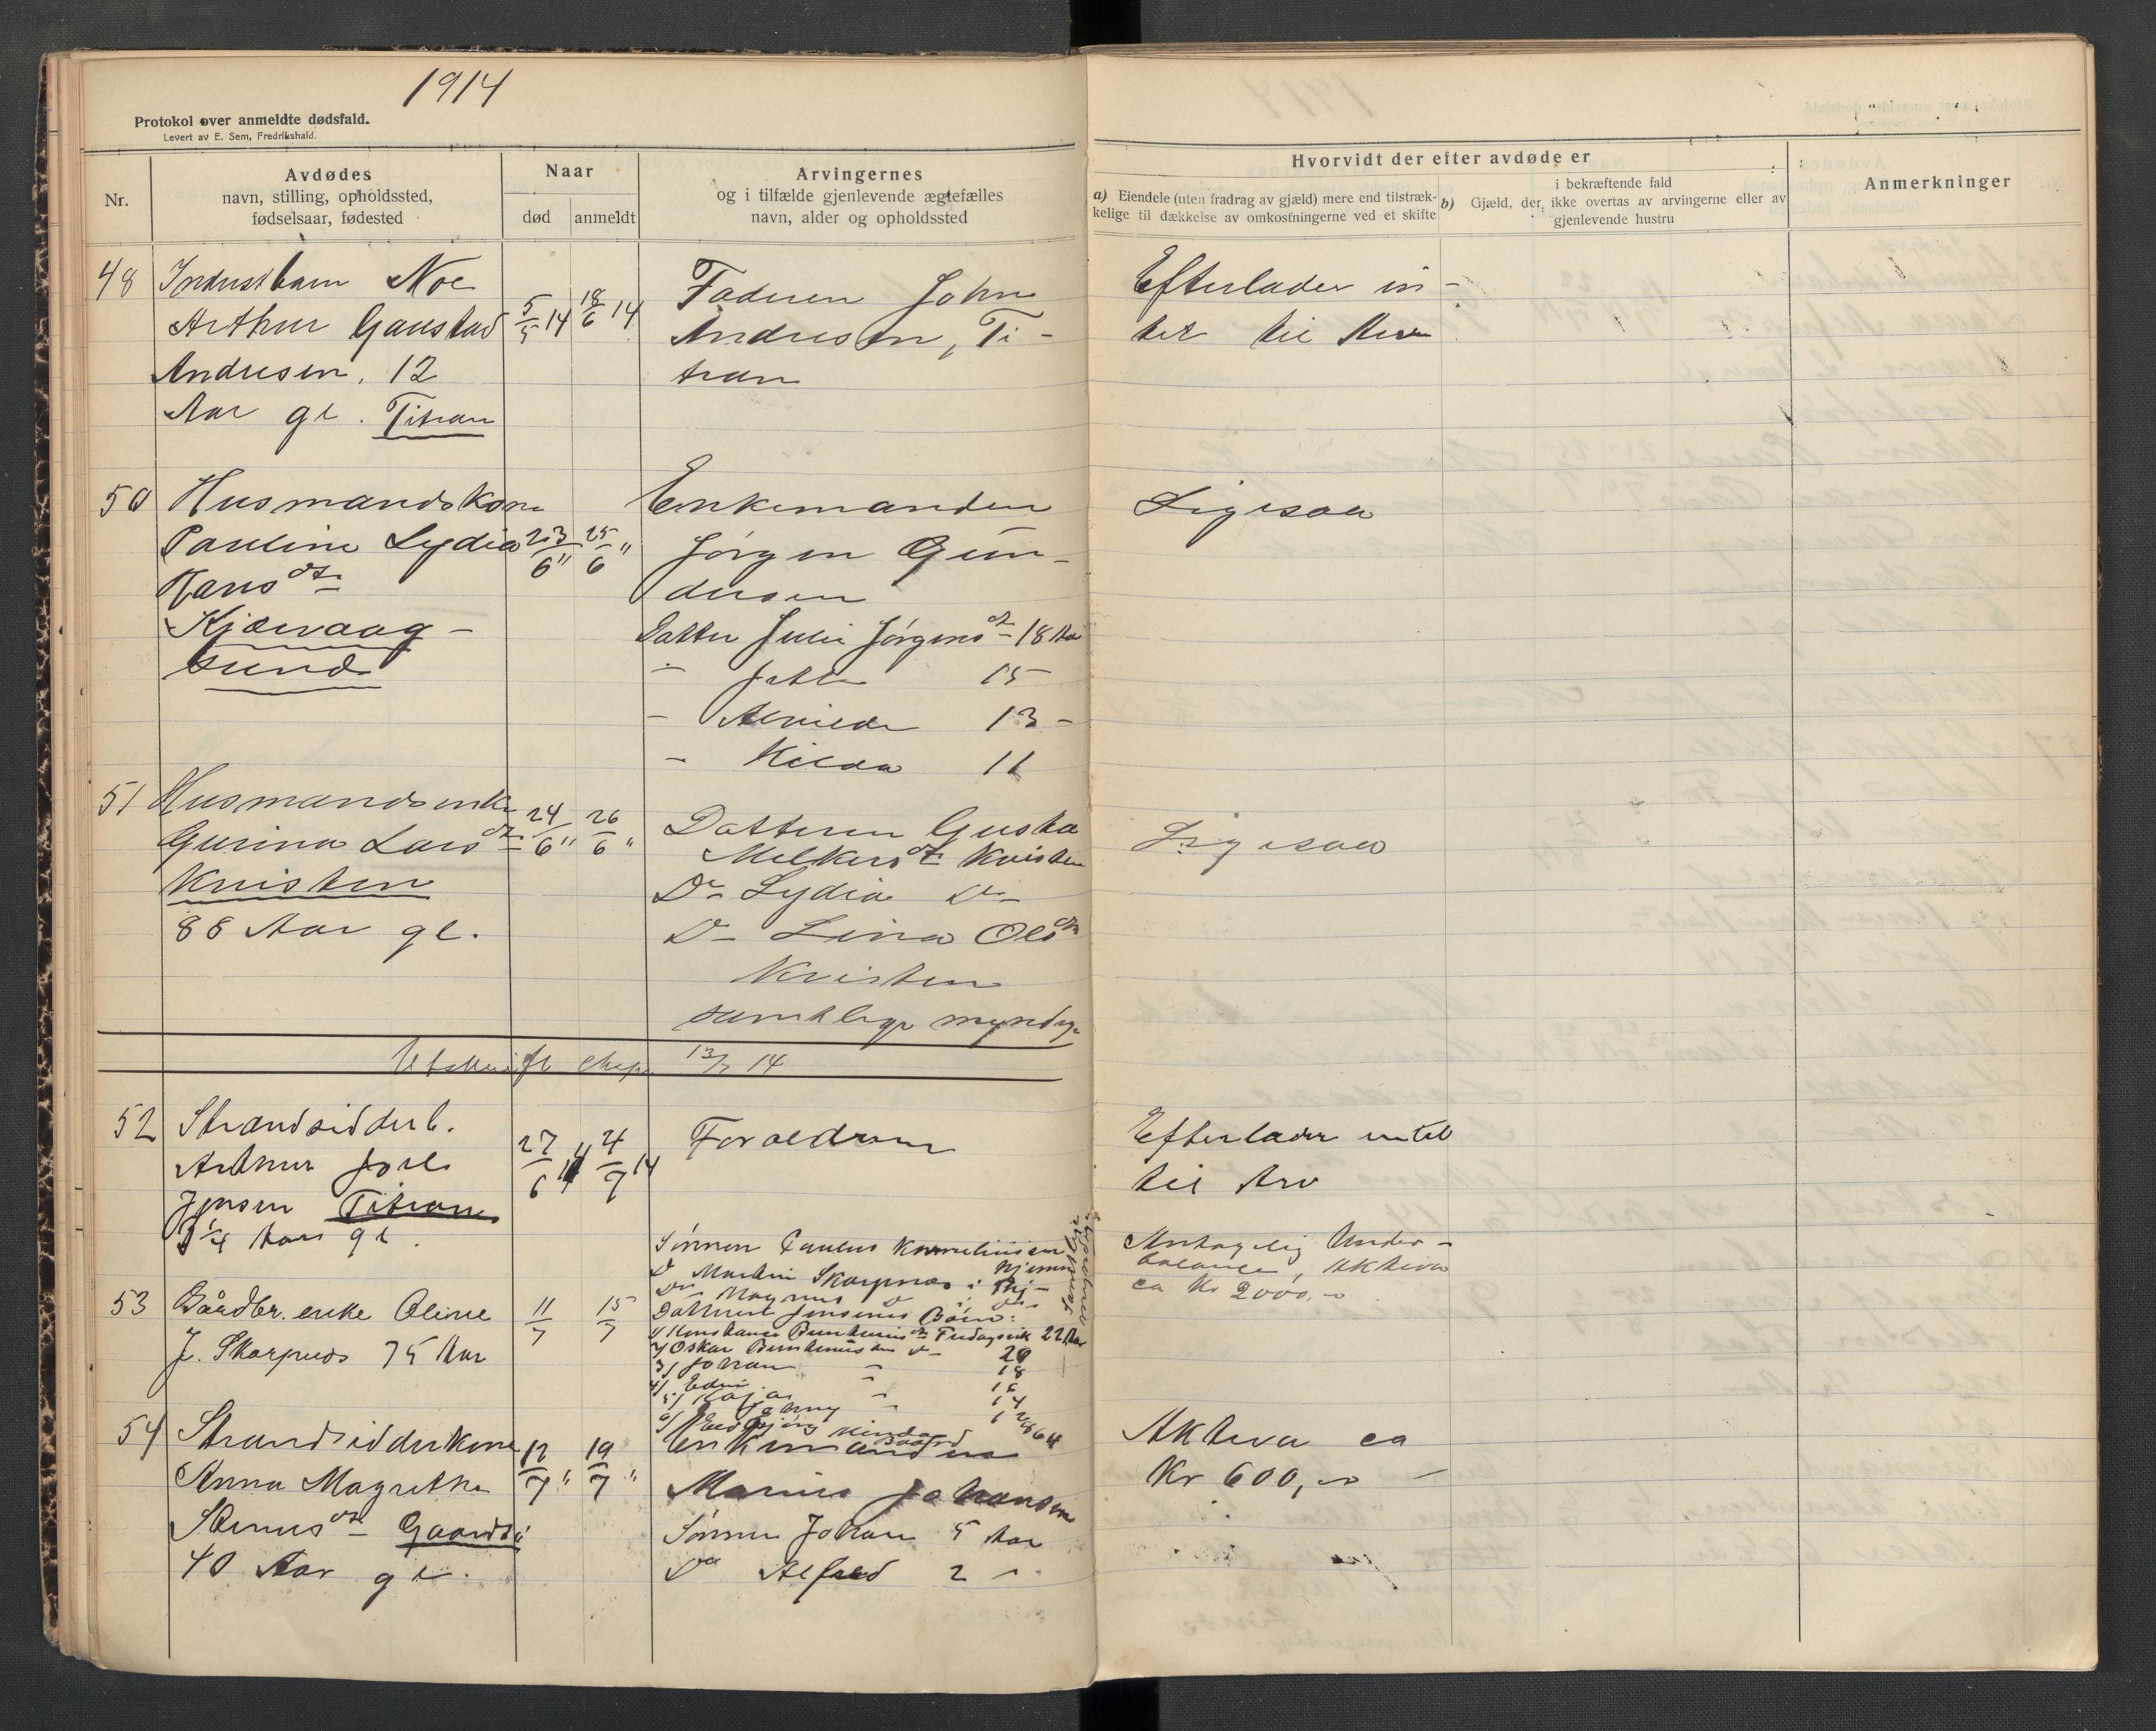 1914
Protokol over anmeldte dødsfald.
Levert av E. Sem, Fredrikshald.
Nr.
Avdødes
navn, stilling, opholdssted,
fødselsaar, fødested
Naar
død
anmeldt
Arvingernes
og i tilfælde gjenlevende ægtefælles
navn, alder og opholdssted
Hvorvidt der efter avdøde er
a) Eiendele (uten fradrag av gjæld) mere end tilstræk-
kelige til dækkelse av omkostningerne ved et skifte
i bekræftende fald
b) Gjæld, der ikke overtas av arvingerne eller av
gjenlevende hustru
Anmerkninger
48
Noe
Arthur Gaustad
Andresen, 12
Aar gl. Titran
5/5 14
18/6 14
Faderen John
Andresen, Ti-
tran
Efterlader in-
tet til
50
Husmandskone
Pauline Lydia
Hansdtr
Kjærvaag-
sund
23/6 "
25/6 "
Enkemanden
Jørgen Gun-
dersen
Datter Julie Jørgensdt 18 Aar
- 15
- Alvilde 13 -
- Hilda 11
Ligesaa
51
Husmandsenke
Gurina Larsdtr
Kvisten
88 Aar gl.
24/6 "
26/6 "
Datteren Gusta
Melkersdtr Kvisten
Do Lydia Do
Do Lina Olsdtr
Kvisten
samtlige myndige
Ligesaa
Utskrift 13/7 14
52
Strandsidderb.
Arthur
Jensen Titran
3 1/4 Aar gl.
27/6 14
4/7 14
Forældrene
Efterlader intet
til Arv
53
Gårdbr. enke Oline
J. Skarpnes 75 Aar
11/7
15/7
Sønnen Paulus Korneliussen Hjemme
Do Martin Skarpnes i
Do Magnus Do i Do
Datteren Børn:
1/ Konstance Fredagsvik 22 Aar
2/ Oskar Do 20
3/ Johan " 18
4/ "
5/ Kaja " 14
6/
Samtlige
Antagelig Under-
balance, Aktiva
ca Kr 2000,-
54
Strandsidderkone
Anna Magrethe
40 Aar gl.
12/7 "
19/7 "
Enkemanden
Marius Johansen
Sønnen Johan 5 Aar
Do Alfred 2 "
Aktiva ca
Kr 600,-